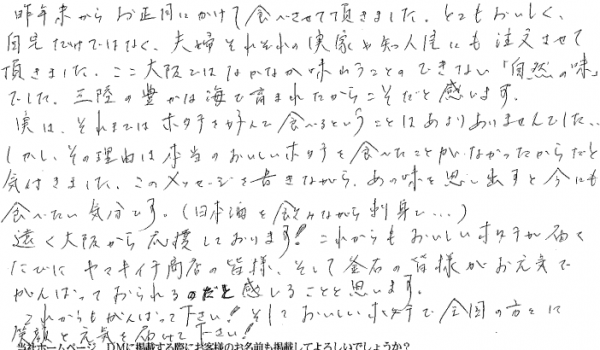 昨年末からお正月にかけて食べさせて頂きました。とてもおいしく、
自宅だけではなく、夫婦それぞれの実家や知人達にも注文させて
頂きました。ここ大阪ではなかなか味わうことのできない「自然の味」
でした。三陸の豊かな海で育まれたからこそだと感じます。
実は、それまではホタテを好んで食べるということはあまりありませんでした。
しかし、その理由は本当のおいしいホタテを食べたことがなかったからだと
気付きました。このメッセージを書きながら、あの味を思い出すと今にも
食べたい気分です。(日本酒を飲みながら刺身で...)
遠く大阪から応援しております!これからもおいしいホタテが届く
たびにヤマキイチ商店の皆様、そして釜石の皆様がお元気で
がんばっておられるのだと感じることと思います。
これからもがんばって下さい!そしておいしいホタテで全国の方々に
笑顔と元気を届けて下さい!
当社ホームページ、DMに掲載する際にお客様のお名前も掲載してよろしいでしょうか?